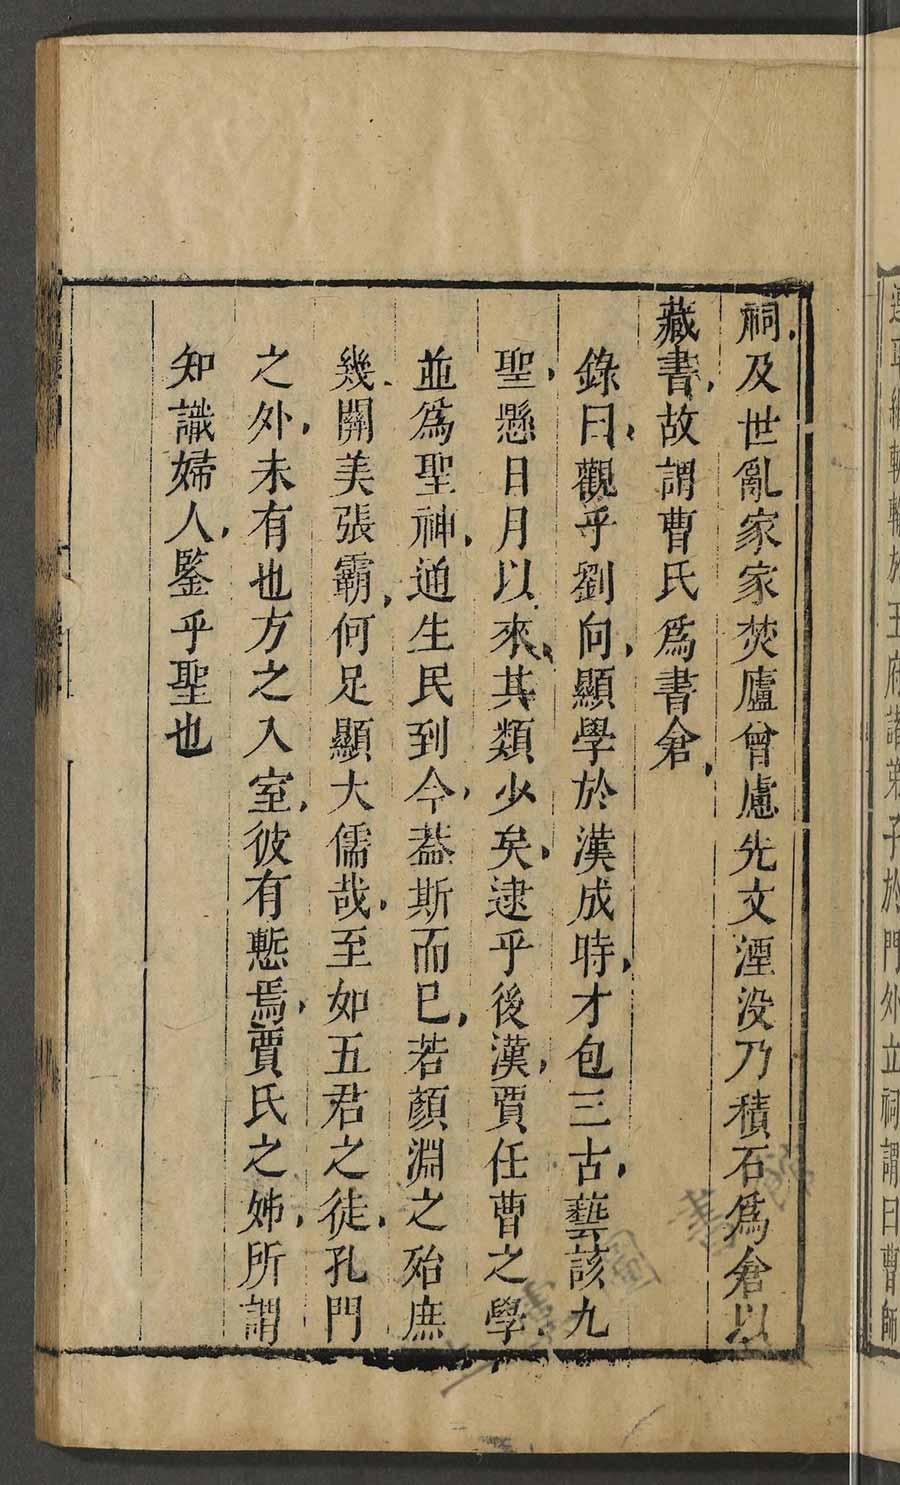 祠及世亂家家焚廬曾慮先文湮没乃積石爲倉以
藏書故謂曹氏爲書倉
錄曰觀乎劉向顯學於漢成時才包三古藝該九
聖懸日月以來其類少矣逮乎後漢賈任曹之學
並爲聖神通生民到今葢斯而已若顏淵之殆庶
幾關美張霸何足顯大儒哉至如五君之徒孔門
之外未有也方之入室彼有慙焉賈氏之姊所謂
知識婦人鍳乎聖也
於五府諸弟子於門外立祠謂曰曹師